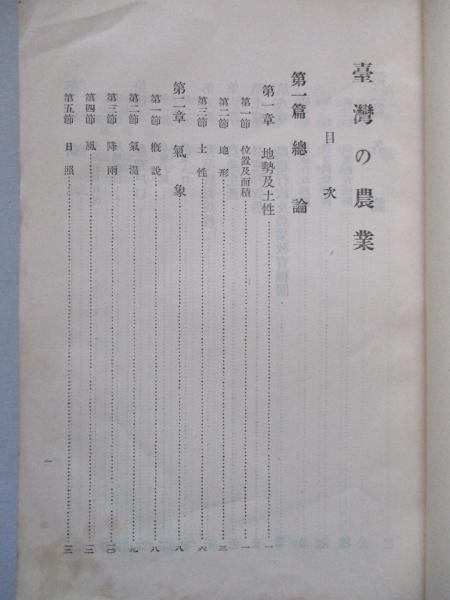 臺灣の農業
目次
第一篇 總論
第一章 地勢及土性……一
第一節 位置及面積……一
第二節 地形……三
第三節 土性……六
第二章 氣象……八
第一節 概說……八
第二節 氣溫……九
第三節 降雨……一〇
第四節 風……一三
第五節 日照……一三
一